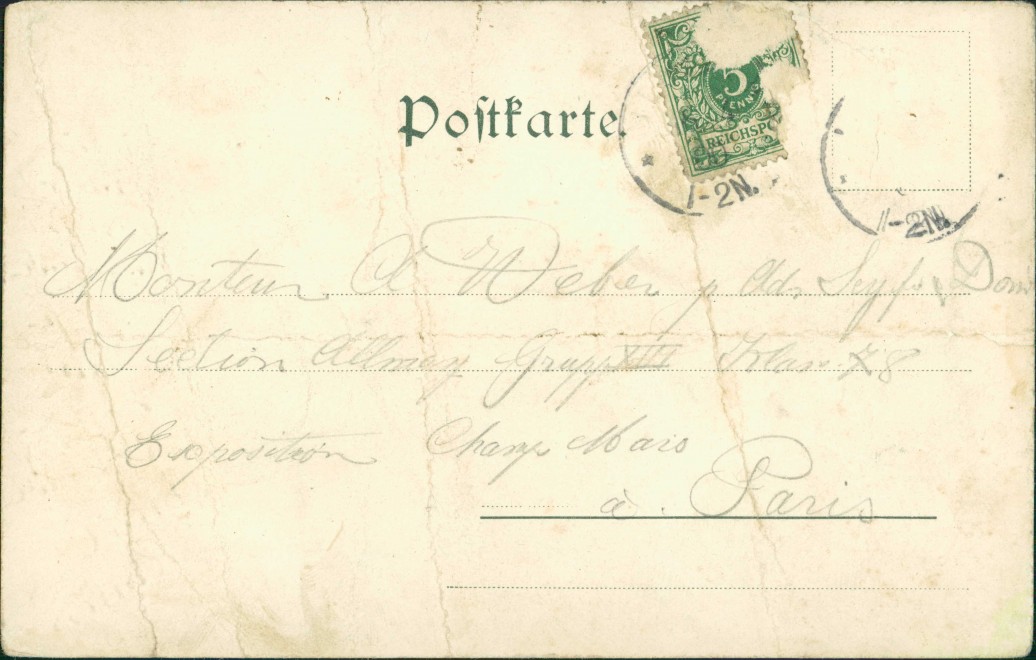 Postkarte.
5
PFENNIG
REICHSPO
1-2N.
1-2N.
Monteur A Weber p Adr Seyf
Section Allmag Grupp XIII Klas 78
Exposition Champ Mars
à Paris